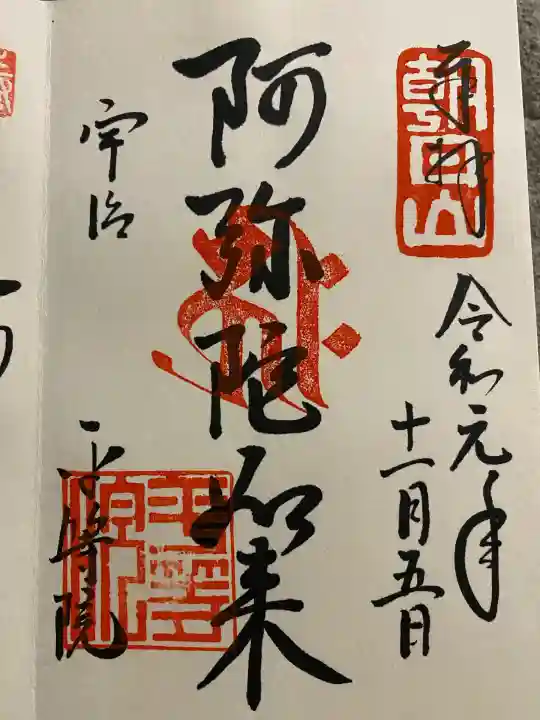 奉拝
朝日山
令和元年
十一月五日
阿弥陀如来
宇治
平等院
平等院